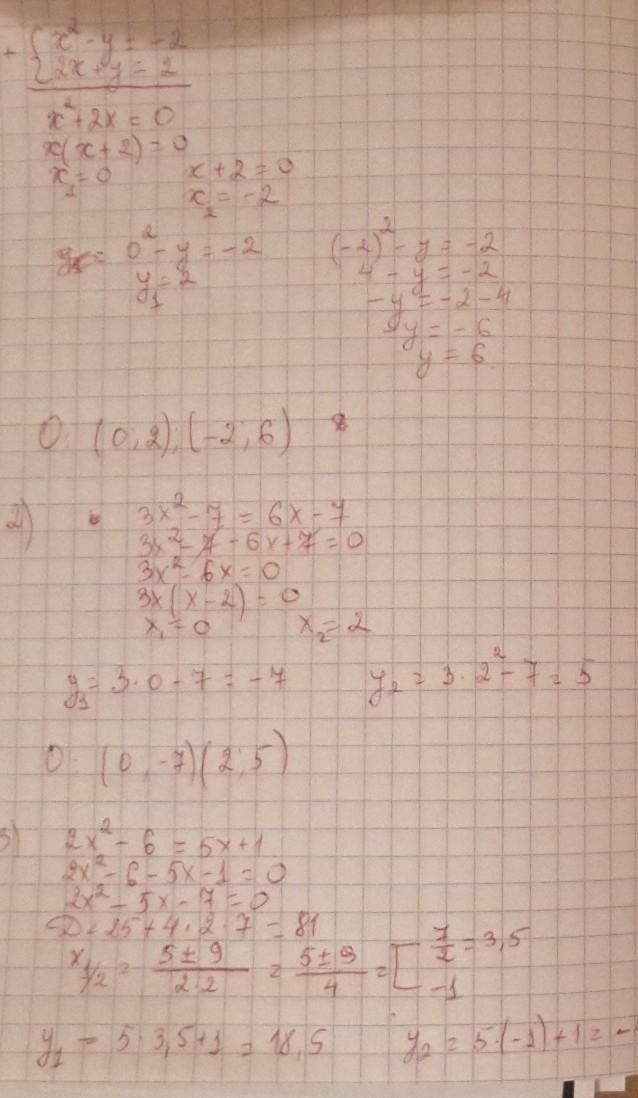 + { x² - y = -2
2x + y = 2
x² + 2x = 0
x(x + 2) = 0
x₁ = 0 x + 2 = 0
x₂ = -2
0² - y = -2 (-2)² - y = -2
y₁ = 2 4 - y = -2
-y = -2 - 4
-y = -6
y = 6
O: (0; 2); (-2; 6)
2) 3x² - 7 = 6x - 7
3x² - 7 - 6x + 7 = 0
3x² - 6x = 0
3x(x - 2) = 0
x₁ = 0 x₂ = 2
y₁ = 3·0 - 7 = -7 y₂ = 3·2² - 7 = 5
O: (0, -7)(2; 5)
3) 2x² - 6 = 5x + 1
2x² - 6 - 5x - 1 = 0
2x² - 5x - 7 = 0
D = 25 + 4·2·7 = 81
x₁/₂ = (5 ± 9)/(2·2) = (5 ± 9)/4 = [ 7/2 = 3,5
-1
y₁ = 5·3,5 + 1 = 18,5 y₂ = 5·(-1) + 1 = -